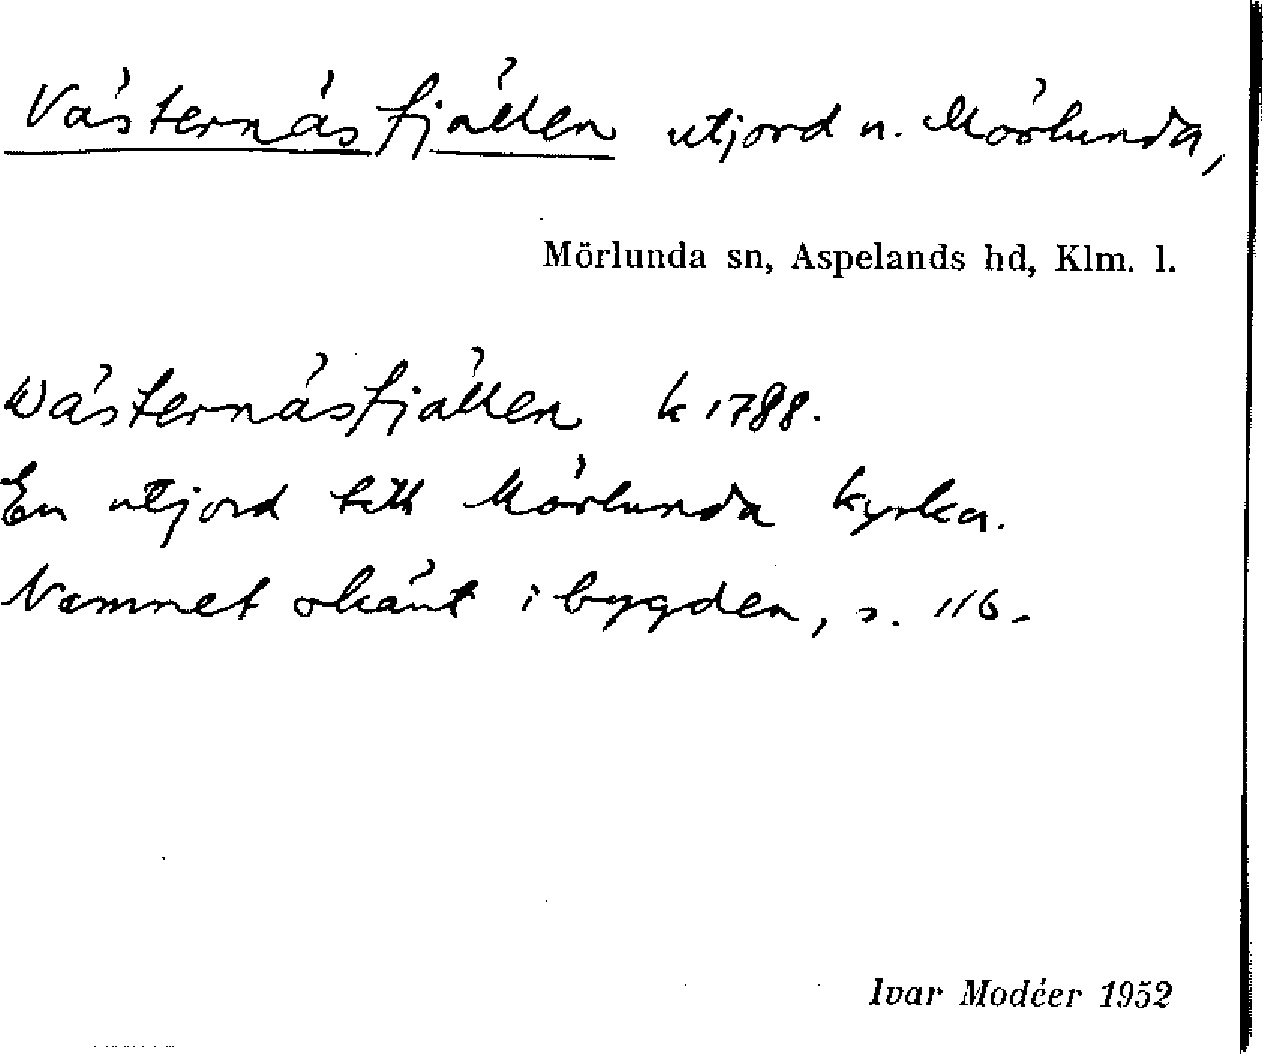 Västernäsfjällen utjord n. Mörlunda,
Mörlunda sn, Aspelands hd, Klm. l.
Wästernäsfjällen k 1788.
En utjord till Mörlunda kyrka.
Namnet okänt i bygden, s. 116.
Ivar Modéer 1952